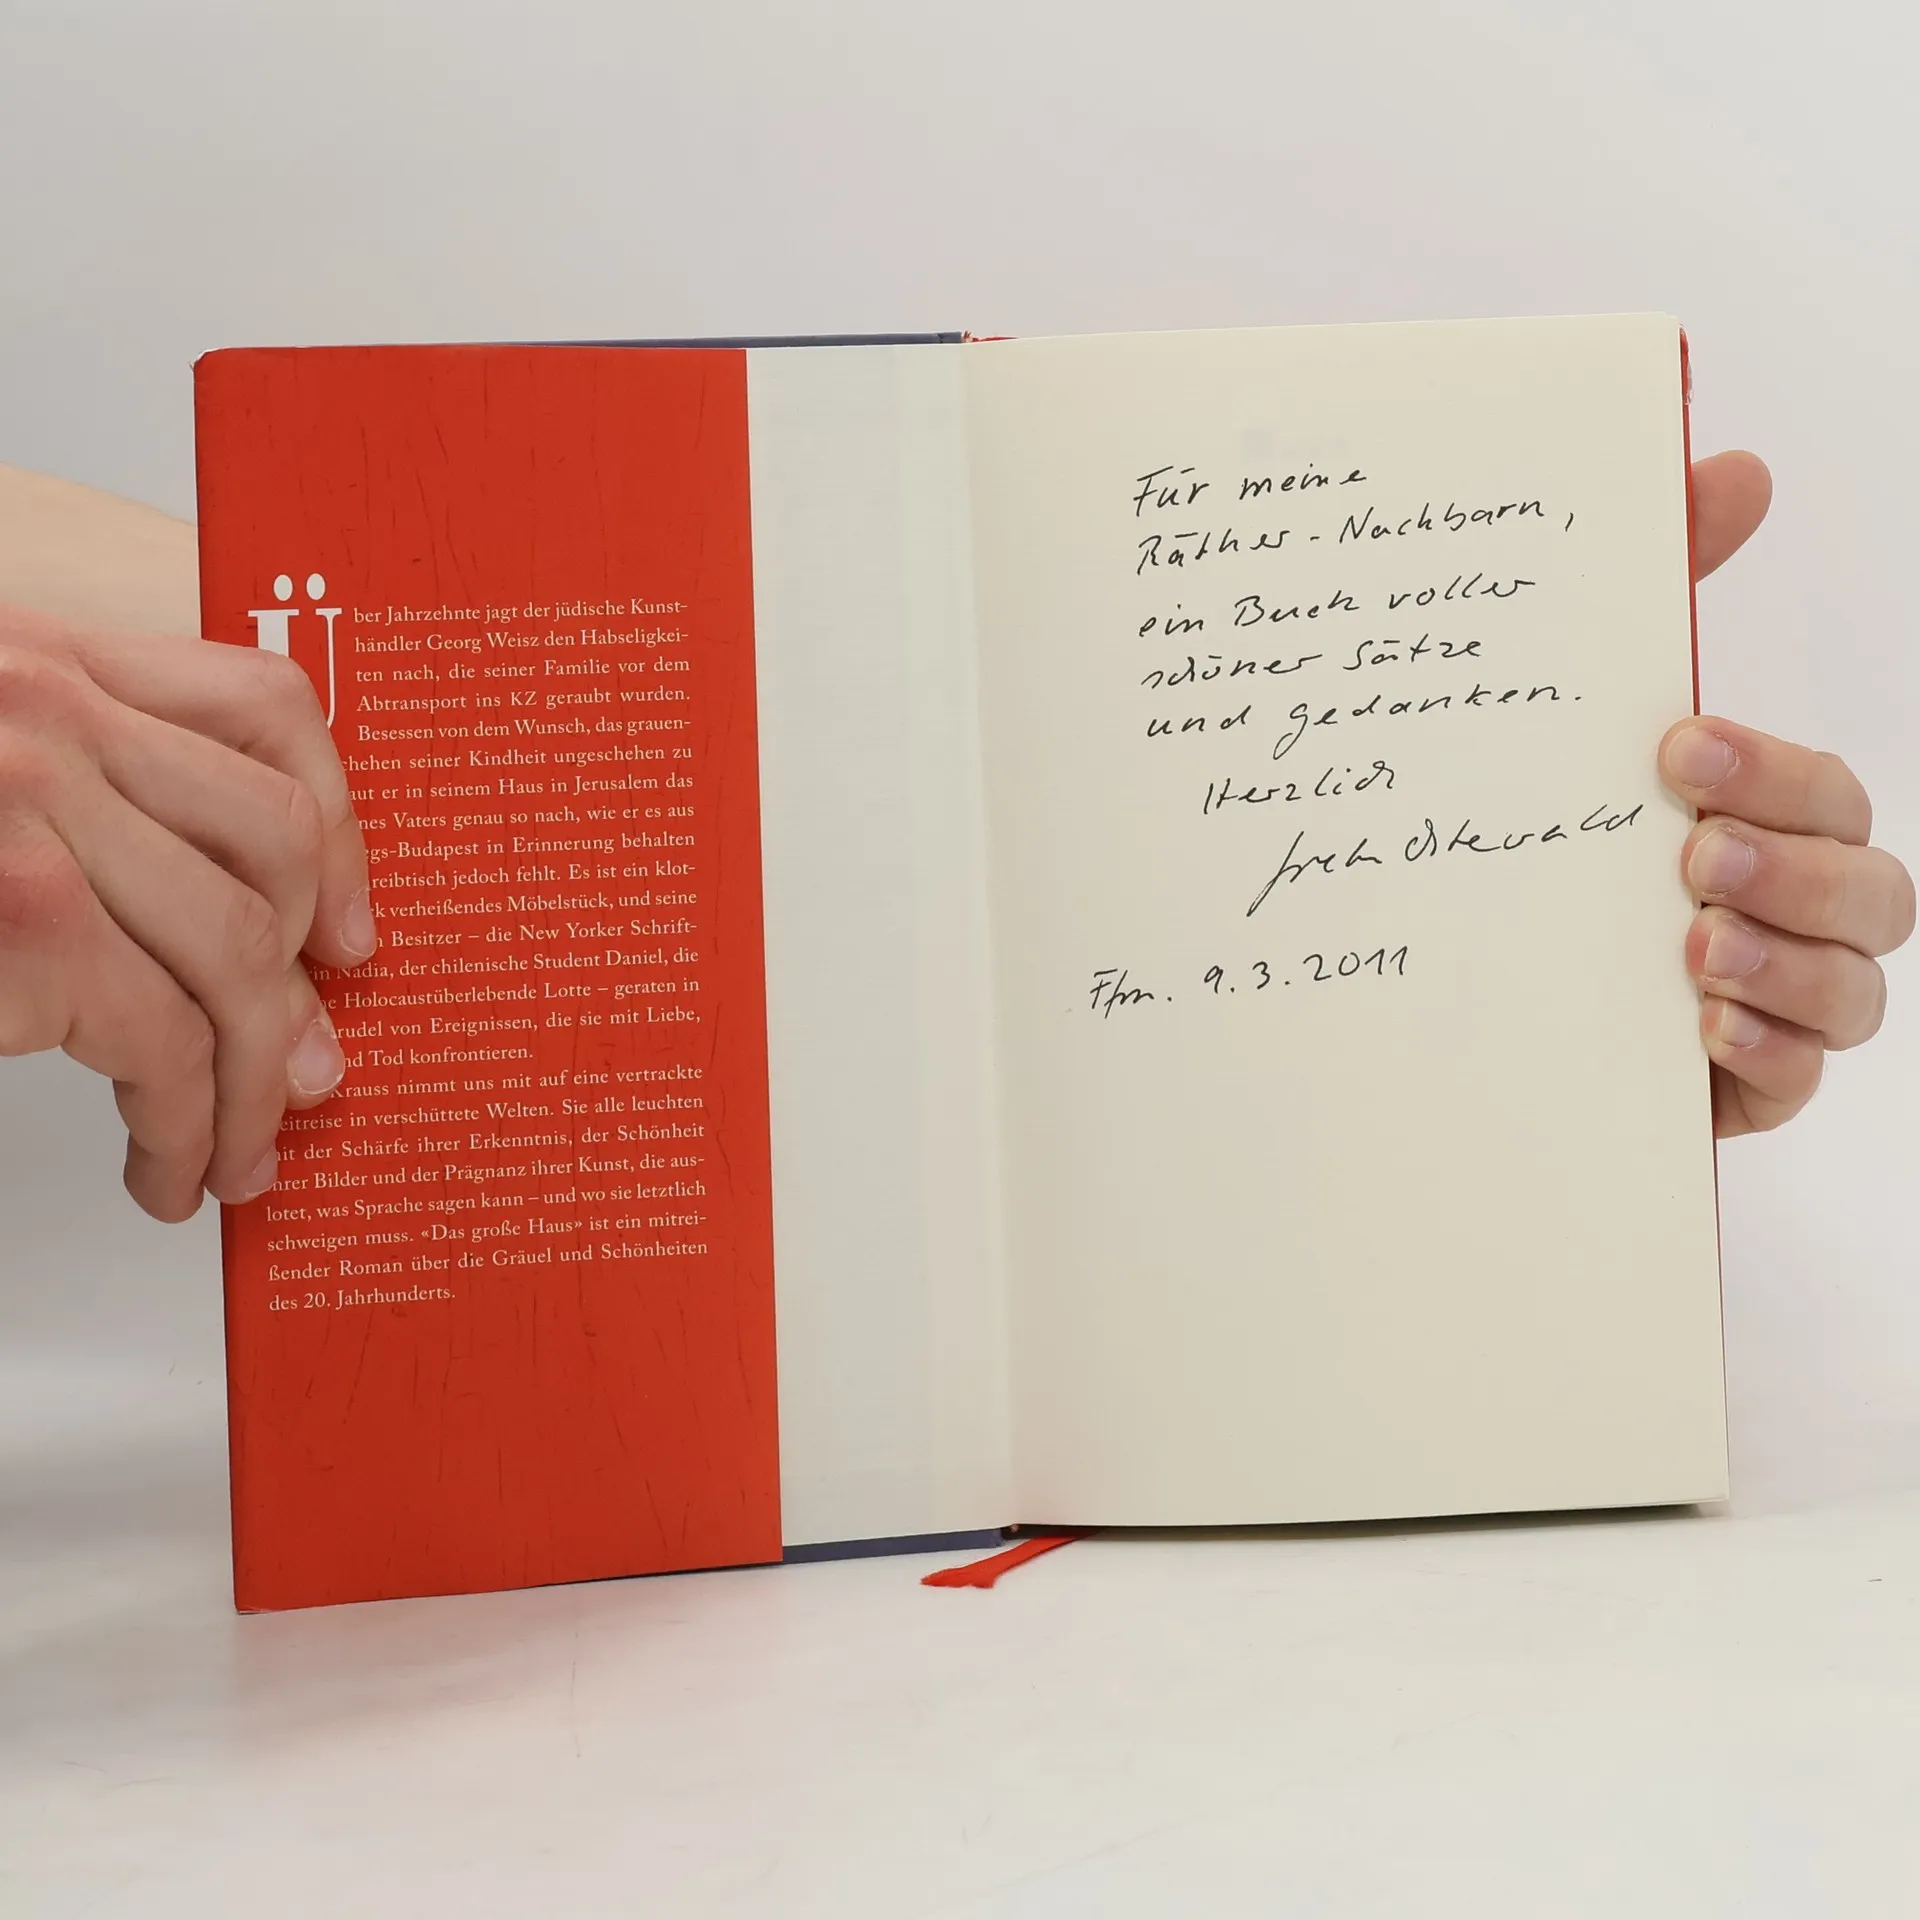 Über Jahrzehnte jagt der jüdische Kunst-
händler Georg Weisz den Habseligkei-
ten nach, die seiner Familie vor dem
Abtransport ins KZ geraubt wurden.
Besessen von dem Wunsch, das grauen-
chehen seiner Kindheit ungeschehen zu
aut er in seinem Haus in Jerusalem das
nes Vaters genau so nach, wie er es aus
egs-Budapest in Erinnerung behalten
reibtisch jedoch fehlt. Es ist ein klot-
k verheißendes Möbelstück, und seine
n Besitzer – die New Yorker Schrift-
rin Nadia, der chilenische Student Daniel, die
he Holocaustüberlebende Lotte – geraten in
rudel von Ereignissen, die sie mit Liebe,
nd Tod konfrontieren.
Krauss nimmt uns mit auf eine vertrackte
eitreise in verschüttete Welten. Sie alle leuchten
it der Schärfe ihrer Erkenntnis, der Schönheit
hrer Bilder und der Prägnanz ihrer Kunst, die aus-
lotet, was Sprache sagen kann – und wo sie letztlich
schweigen muss. «Das große Haus» ist ein mitrei-
ßender Roman über die Gräuel und Schönheiten
des 20. Jahrhunderts.
Für meine
Räther-Nachbarn,
ein Buch voller
schöner Sätze
und Gedanken.
Herzlich
Ffm. 9.3.2011